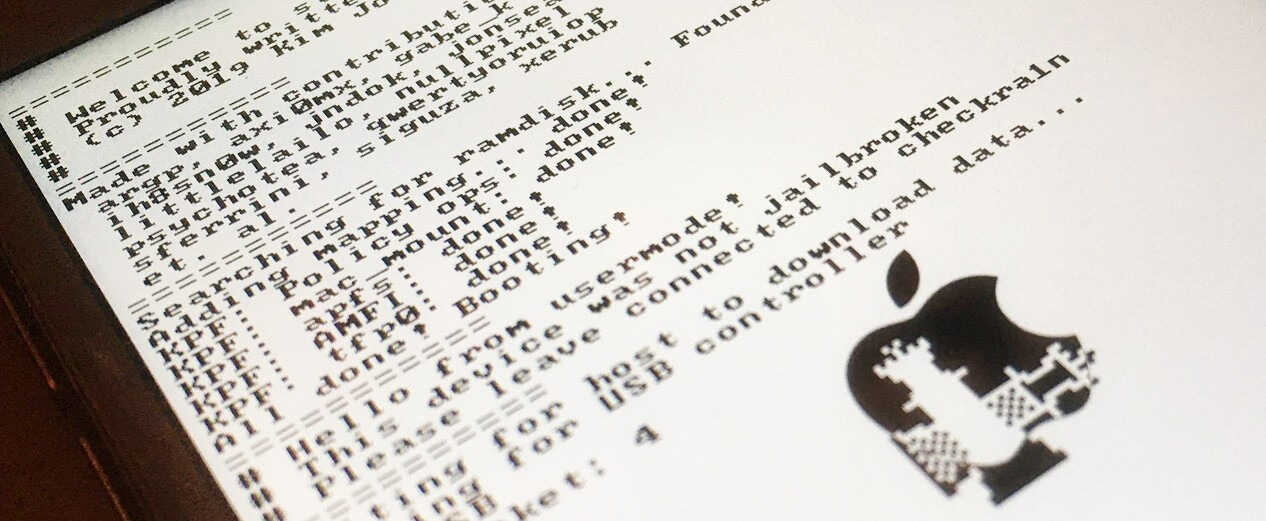 =============
# Welcome to s
# Proudly writte
# (c) 2019 Kim Jo
#
=============
Made with contributi
argp, axi0mx, gabe_k
ih8sn0w, jndok, jonsea
littlelailo, nullpixel
psychotea, qwertyoruiop
sferrini, siguza, xerub
et. al.
=============
Searching for ramdisk... Found
Adding mapping... done!
KPF: Policy ops: done!
KPF: mac_mount: done!
KPF: apfs: done!
KPF: AMFI: done!
KPF: tfp0: done!
All done! Booting!
=============
# Hello from usermode!
# This device was not jailbroken
# Please leave connected to checkra1n
=============
ting for host to download data...
ting for USB controller
SB
ket: 4